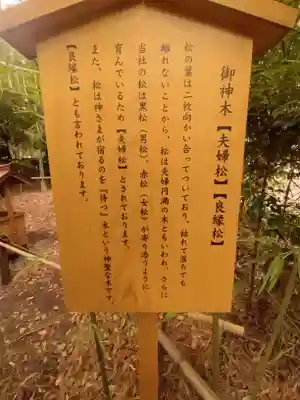 御神木【夫婦松】【良縁松】
松の葉は二枚向かい合ってついており、枯れて落ちても
離れないことから、松は夫婦円満の木ともいわれ、さらに
当社の松は黒松(男松)、赤松(女松)が寄り添うように
育んでいるため【夫婦松】とされております。
また、松は神さまが宿るのを『待つ』木という神聖な木です。
【良縁松】とも言われております。